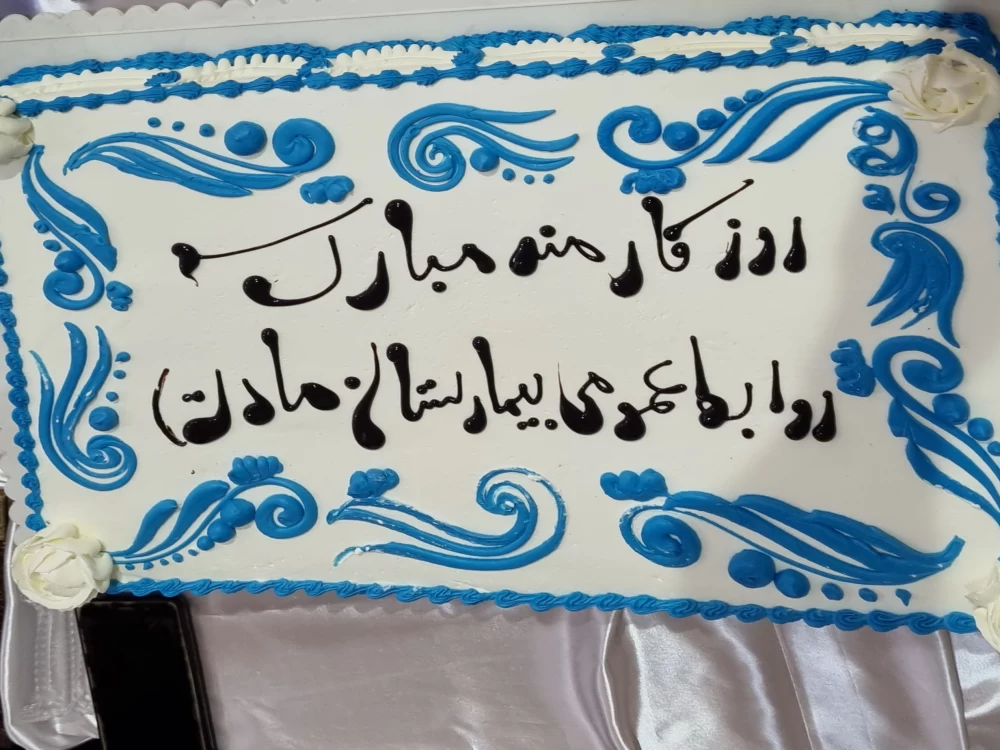 روز کارمند مبارک
روابط عمومی بیمارستان مادران